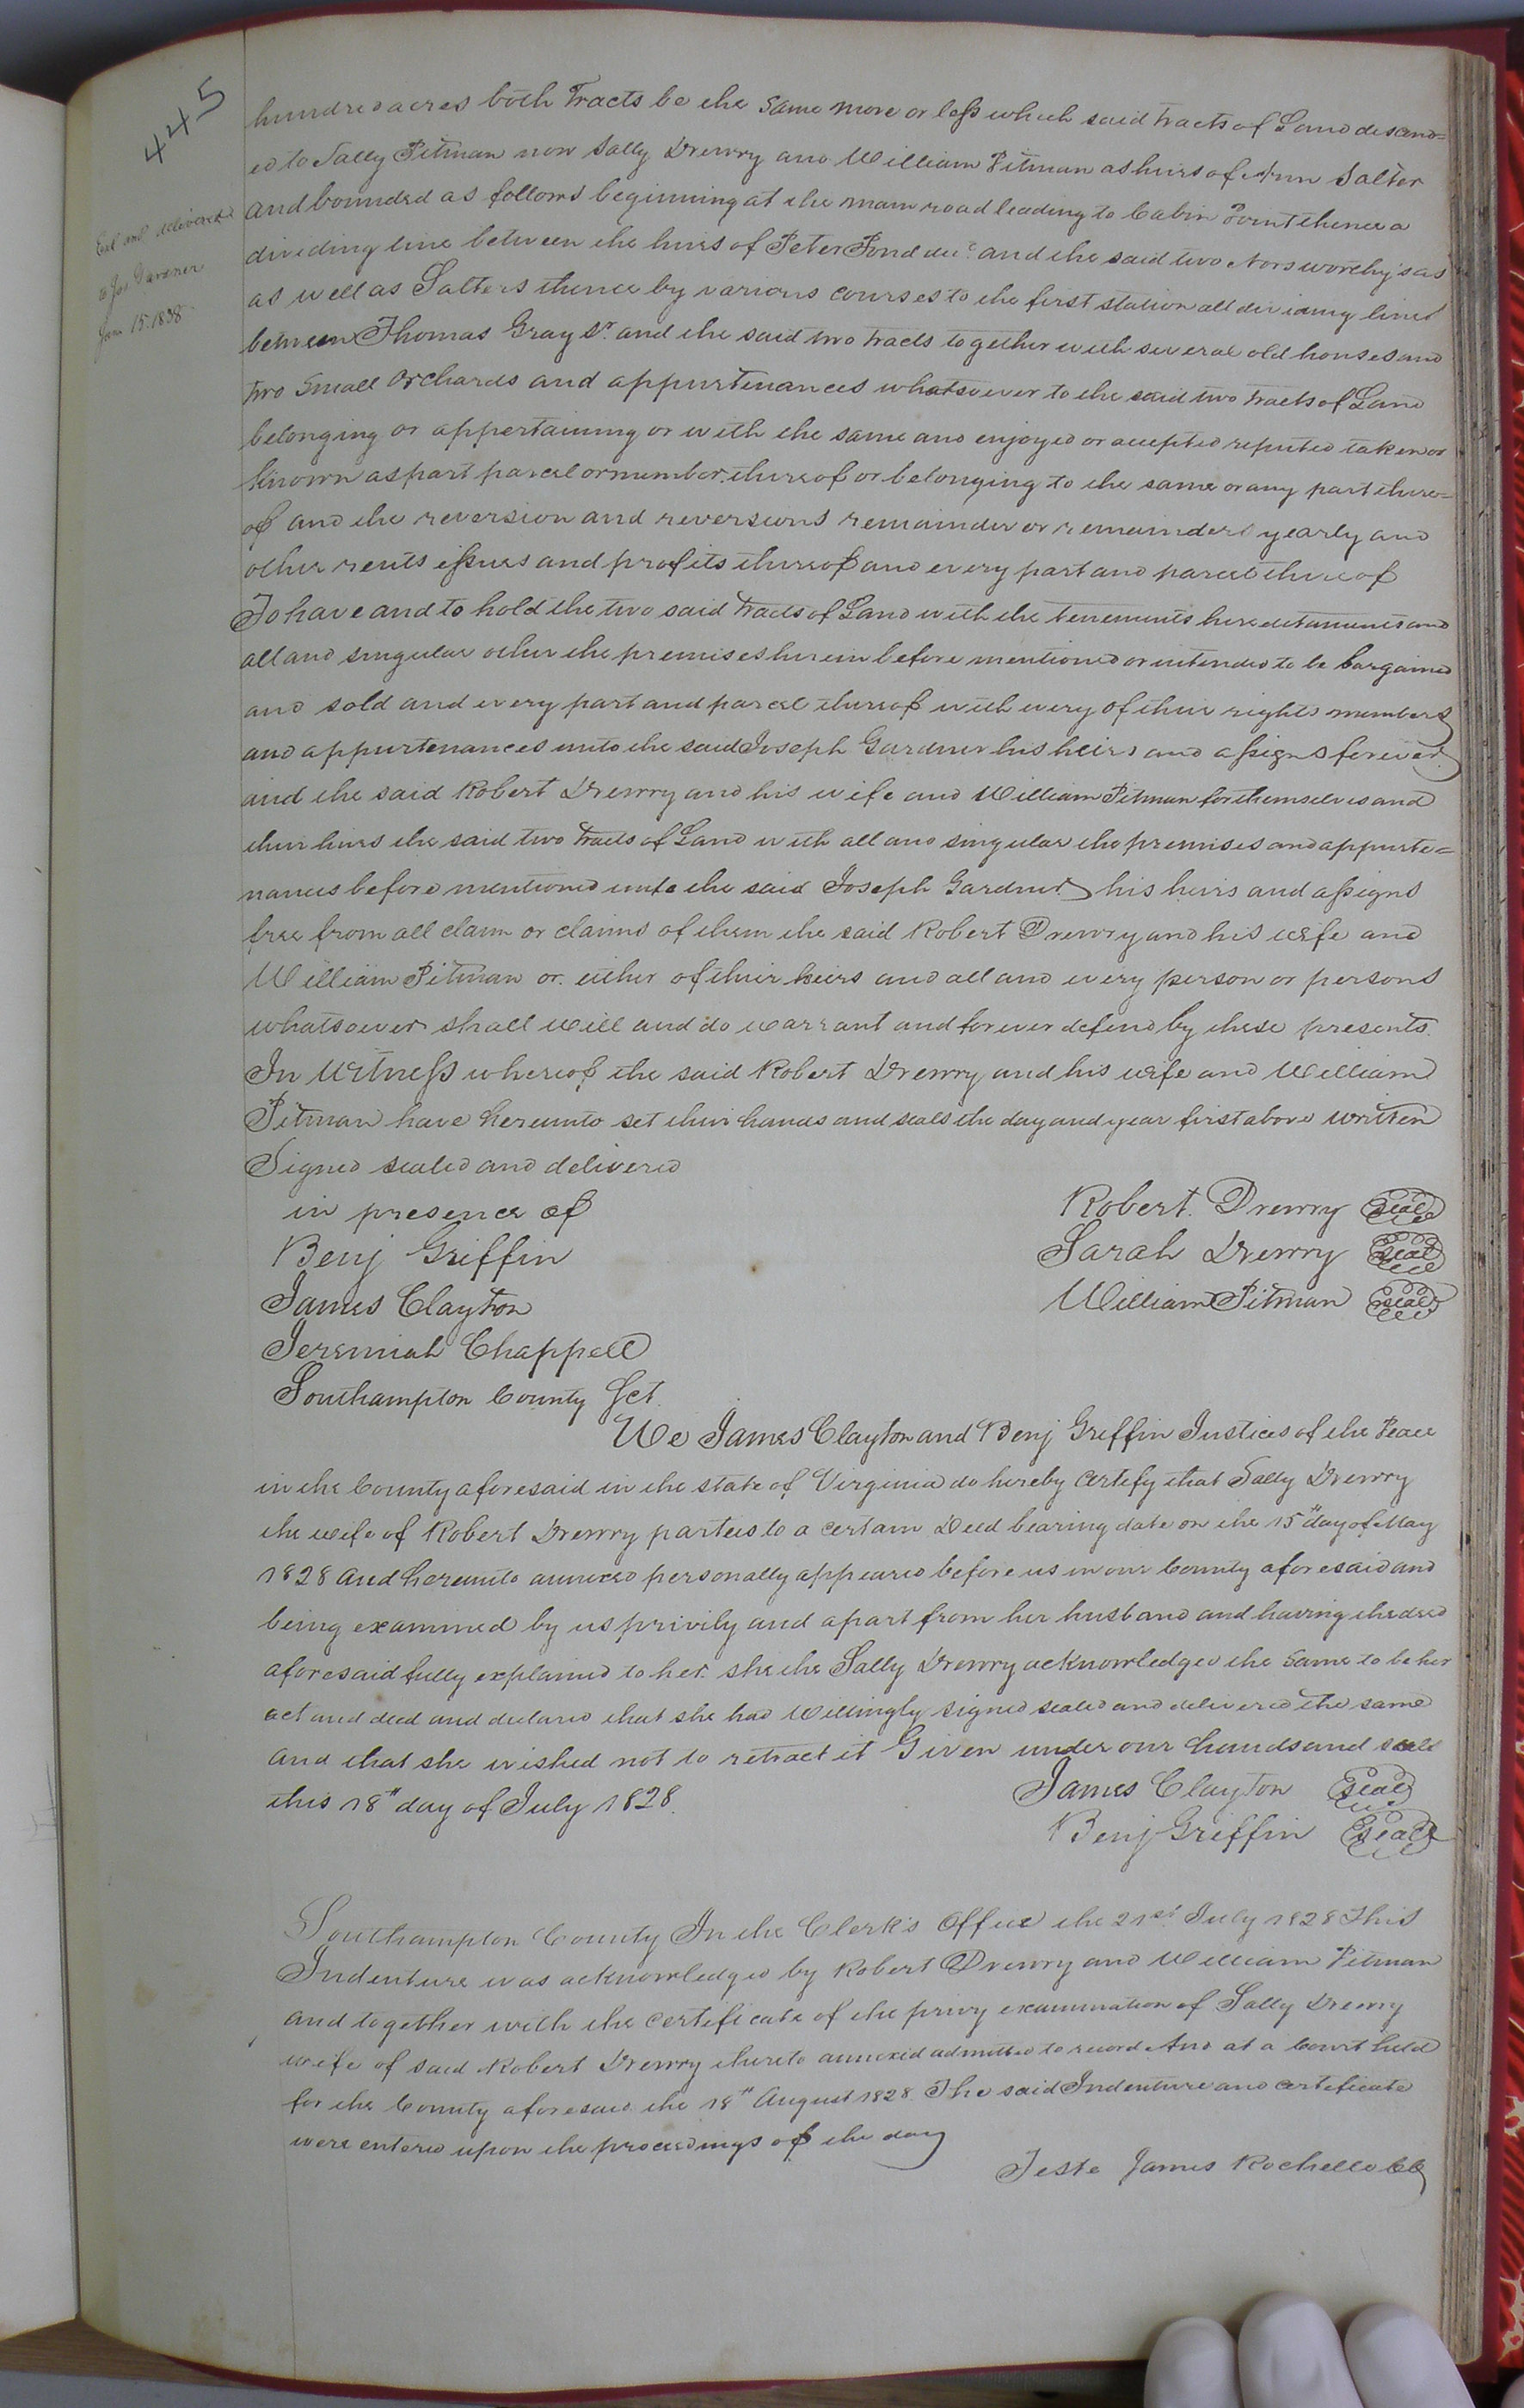 445
hundred acres both Tracts be the same more or less which said tracts of Land descend=
ed to Sally Pitman now Sally Drewry and William Pitman as heirs of Ann Salter
and bounded as follows beginning at the main road leading to Cabin Point thence a
dividing line between the heirs of Peter Pond decd and the said two Norsworthy's as
as well as Salters thence by various courses to the first station all dividing lines
between Thomas Gray Sr. and the said two tracts together with several old houses and
two small Orchards and appurtenances whatsoever to the said two tracts of Land
belonging or appertaining or with the same and enjoyed or accepted reputed taken or
known as part parcel or number thereof or belonging to the same or any part there=
of and the reversion and reversions remainder or remainders yearly and
other rents issues and profits thereof and every part and parcel thereof
To have and to hold the two said tracts of Land with the tenements hereditaments and
all and singular other the premises herein before mentioned or intended to be bargained
and sold and every part and parcel thereof with every of their rights members
and appurtenances unto the said Joseph Gardner his heirs and assigns forever
and the said Robert Drewry and his wife and William Pitman for themselves and
their heirs the said two tracts of Land with all and singular the premises and appurte=
nances before mentioned unto the said Joseph Gardner his heirs and assigns
free from all claim or claims of them the said Robert Drewry and his wife and
William Pitman or either of their heirs and all and every person or persons
whatsoever shall will and do warrant and forever defend by these presents.
In Witness whereof the said Robert Drewry and his wife and William
Pitman have hereunto set their hands and seals the day and year first above written
Signed sealed and delivered
in presence of
Benj Griffin
James Clayton
Jeremiah Chappell
Robert Drewry seal
Sarah Drewry seal
William Pitman seal
Southampton County Sct.
We James Clayton and Benj Griffin Justices of the Peace
in the County aforesaid in the state of Virginia do hereby Certify that Sally Drewry
the wife of Robert Drewry parties to a certain Deed bearing date on the 15th day of May
1828 and hereunto annexed personally appeared before us in our County aforesaid and
being examined by us privily and apart from her husband and having the deed
aforesaid fully explained to her. she the Sally Drewry acknowledged the same to be her
act and deed and declared that she had willingly signed sealed and delivered the same
and that she wished not to retract it Given under our hands and seals
this 18th day of July 1828.
James Clayton seal
Benj Griffin seal
Southampton County In the Clerk's Office the 21st July 1828 This
Indenture was acknowledged by Robert Drewry and William Pitman
and together with the certificate of the privy examination of Sally Drewry
wife of said Robert Drewry thereto annexed admitted to record And at a Court held
for the County aforesaid the 18th August 1828 The said Indenture and certificate
were entered upon the proceedings of the day
Teste James Rochelle CC
and delivered
to Jos. Gardner
Jan. 15. 1838